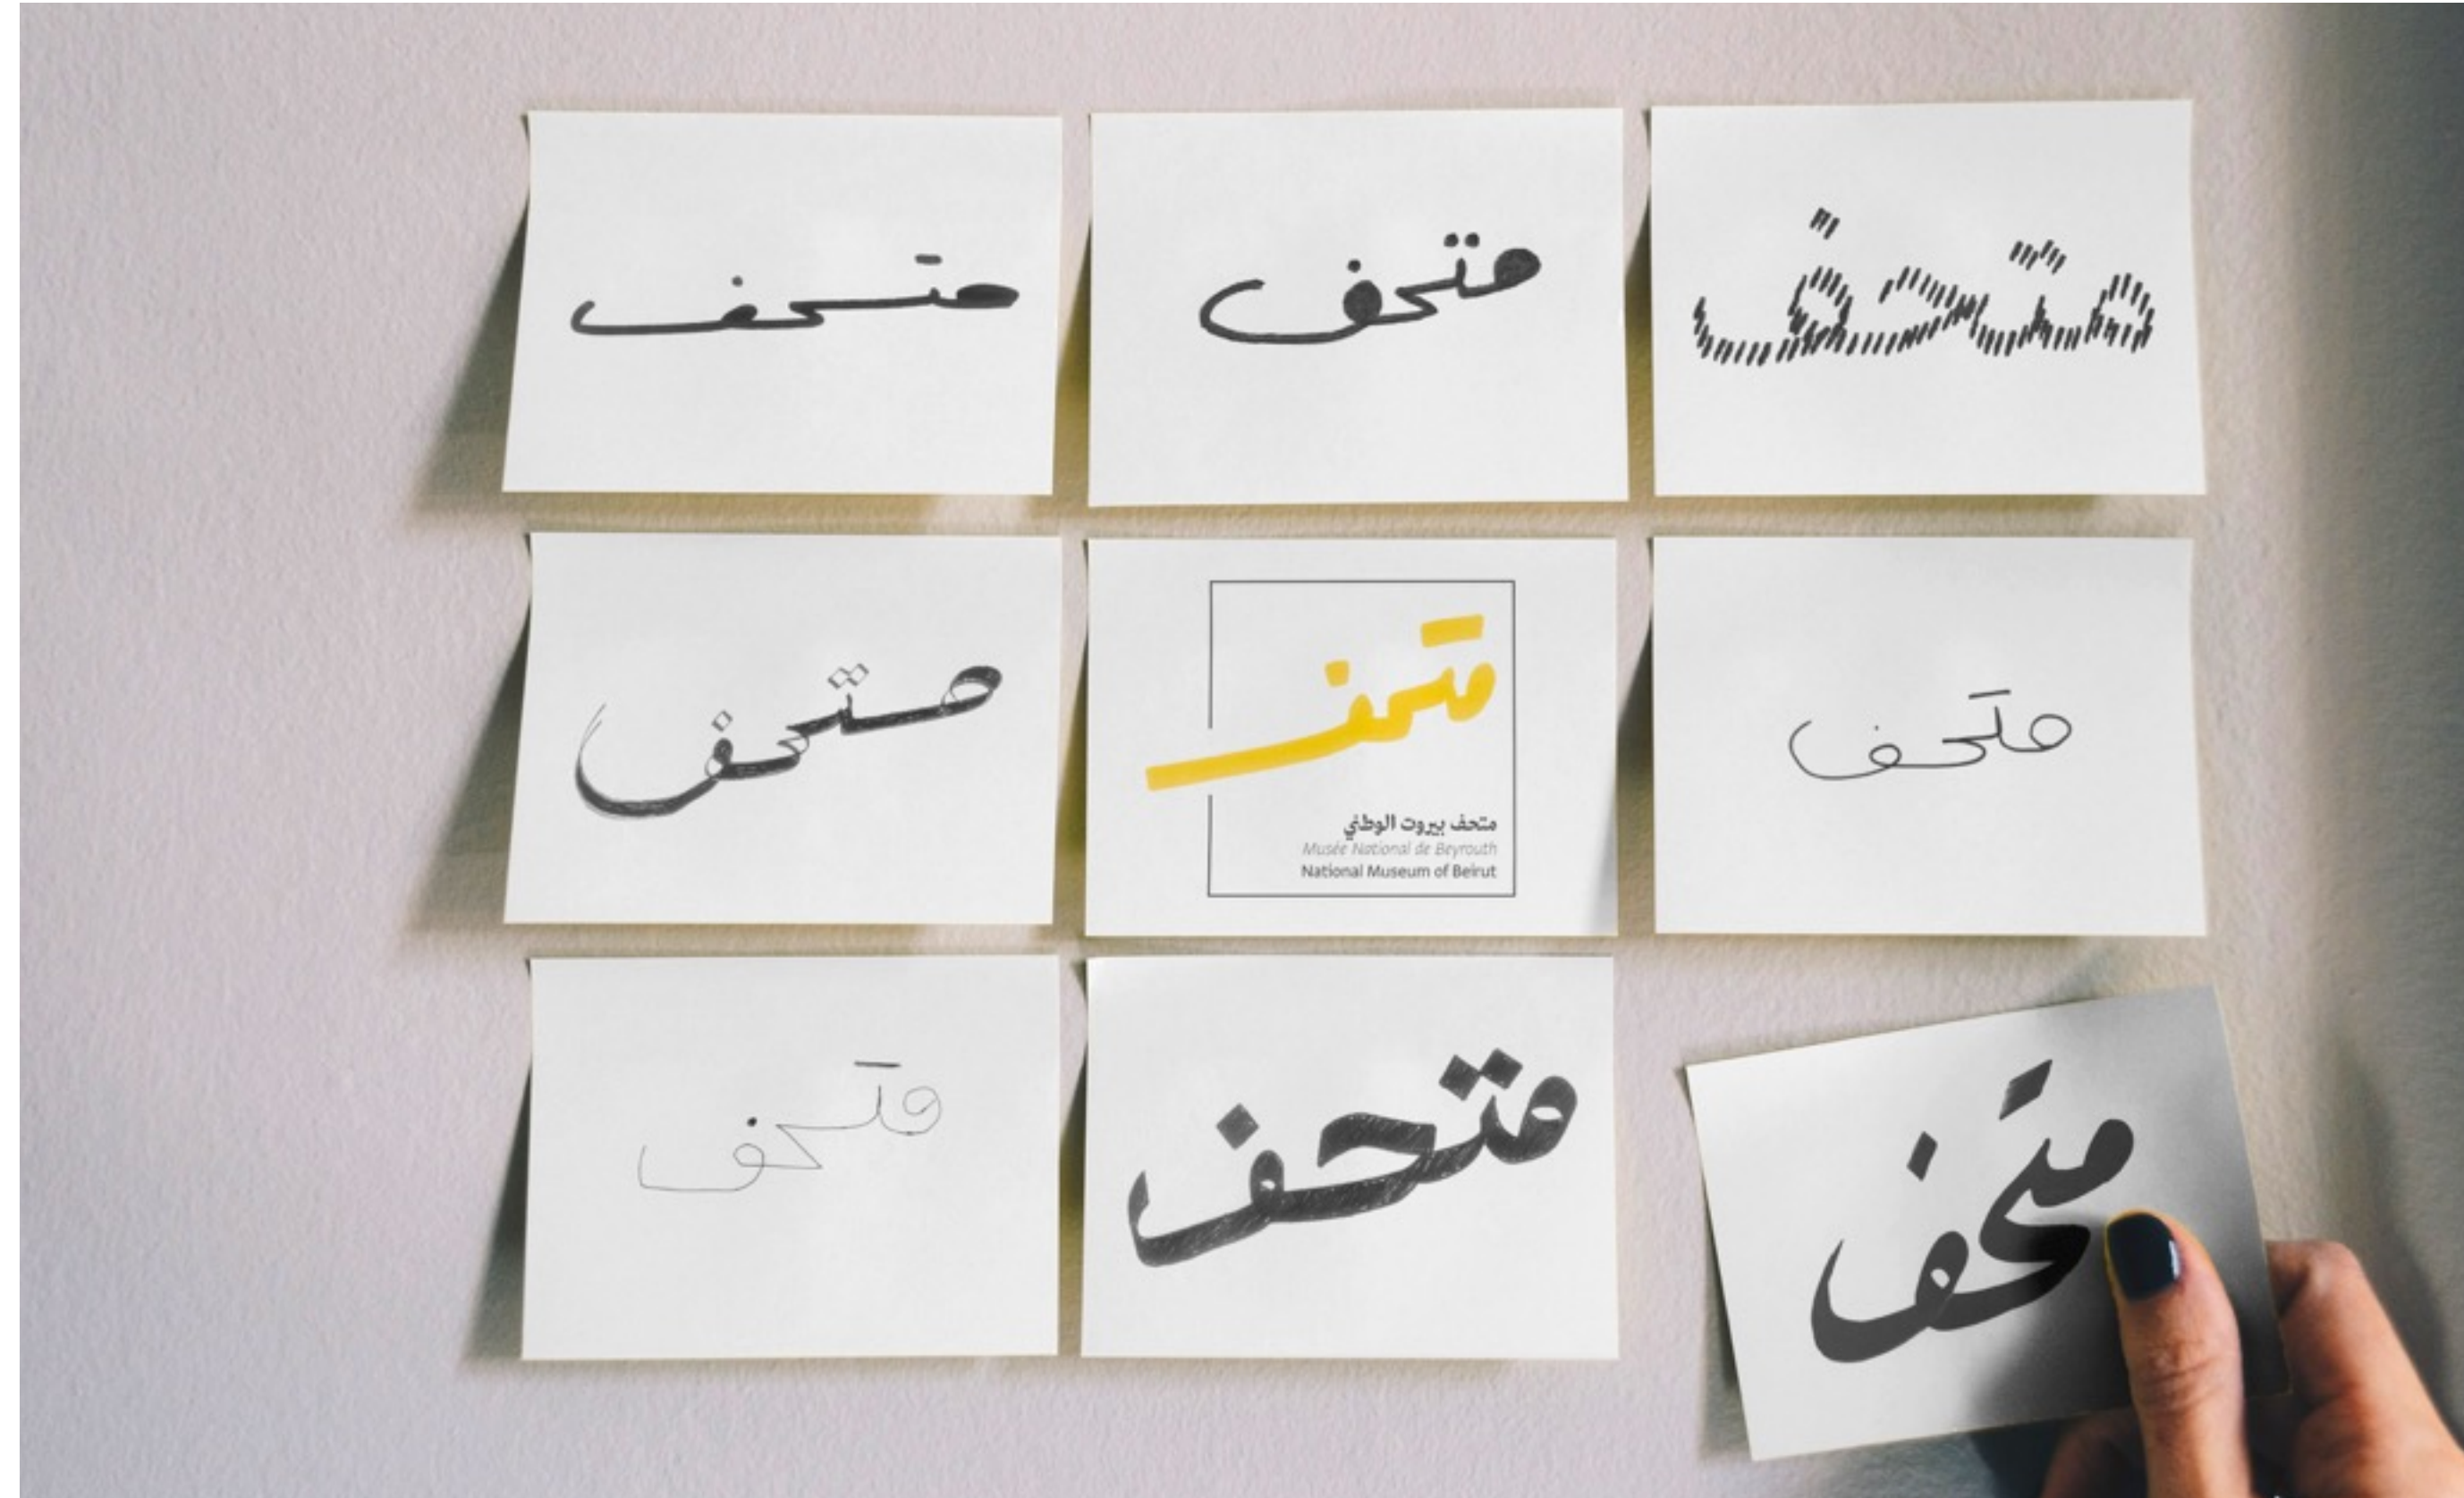 متحف
متحف
متحف
متحف
متحف
متحف بيروت الوطني
Musée National de Beyrouth
National Museum of Beirut
متحف
متحف
متحف
متحف